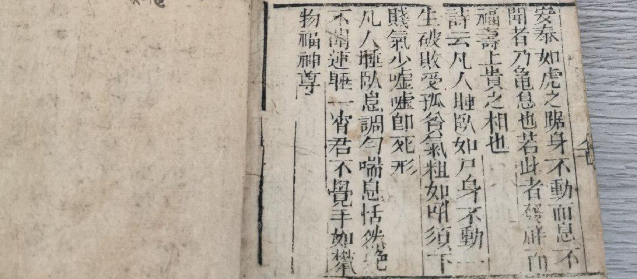 安泰如虎之踞身不動而息不
聞者乃龜息也若此者發財而
福壽上貴之相也
詩云凡人睡臥如尸身不動一
生破敗受孤貧氣粗如吼須下
賤氣少噓噓即死形
凡人睡臥息調勻喘息恬然絶
不聞連睡一宵君不覺手如攀
物福神尊